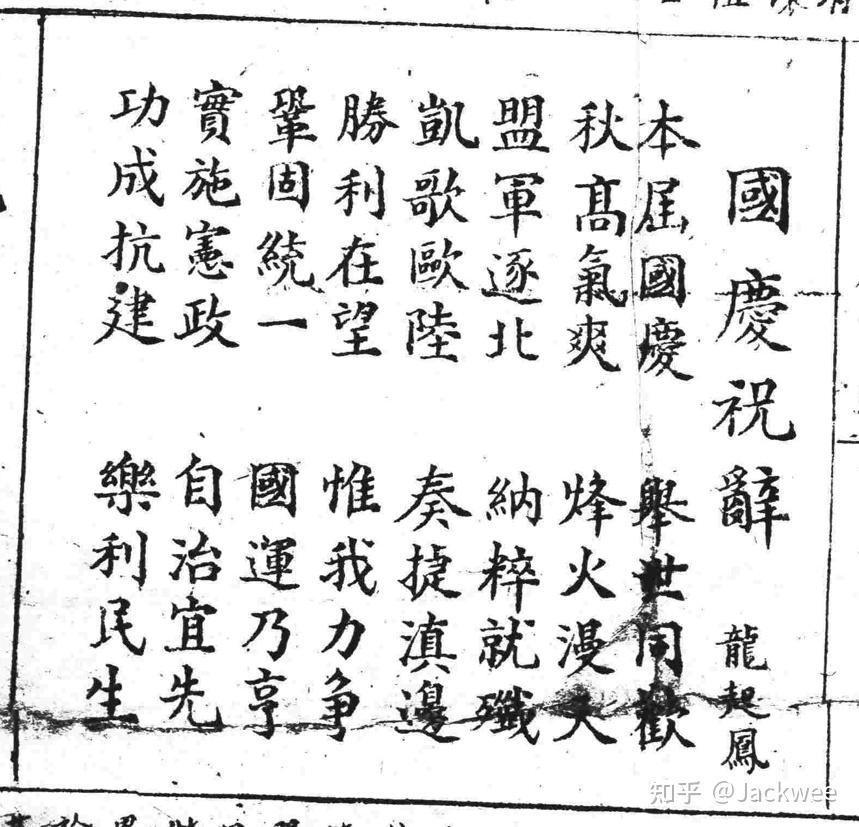 國慶祝辭 龍起鳳
本屆國慶 舉世同歡
秋高氣爽 烽火漫天
盟軍逐北 納粹就殲
凱歌歐陸 奏捷滇邊
勝利在望 惟我力爭
鞏固統一 國運乃亨
實施憲政 自治宜先
功成抗建 樂利民生
知乎 @Jackwee